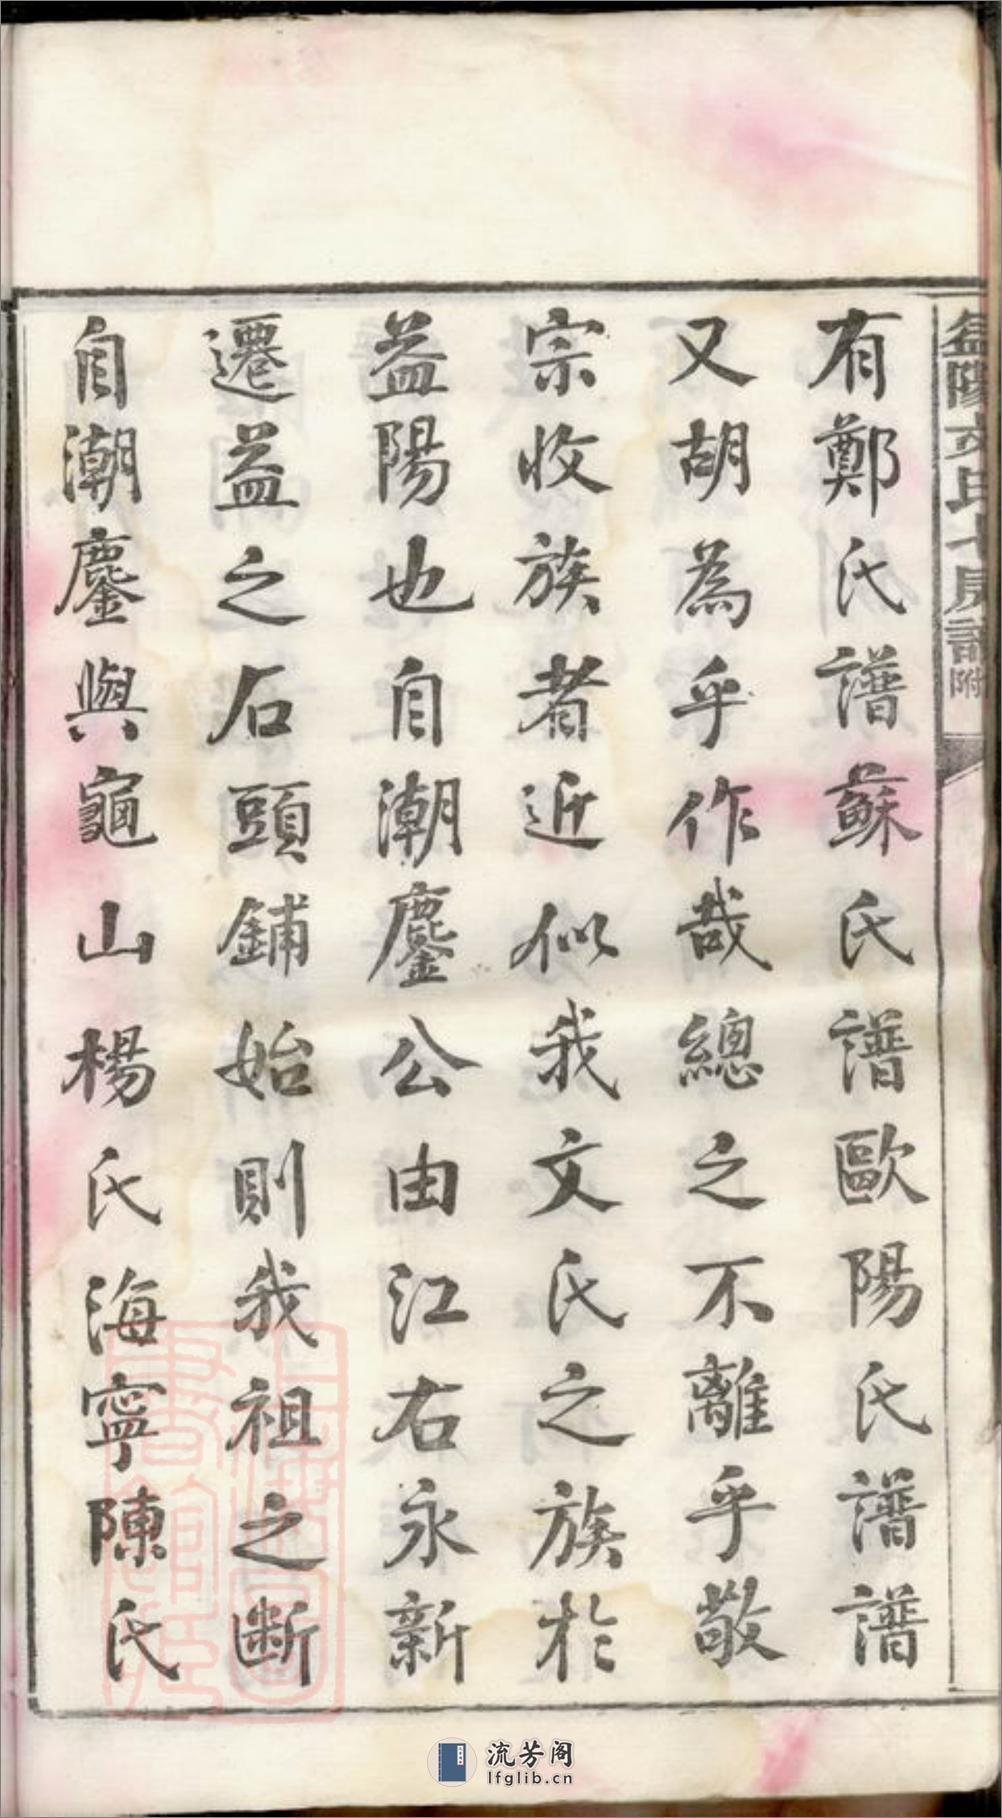 益陽文氏七房譜附
有鄭氏譜蘇氏譜歐陽氏譜譜
又胡為乎作哉總之不離乎敬
宗收族者近似我文氏之族於
益陽也自潮鏖公由江右永新
遷益之石頭鋪始則我祖之斷
自潮鏖與龜山楊氏海寧陳氏
流芳阁
lfglib.cn